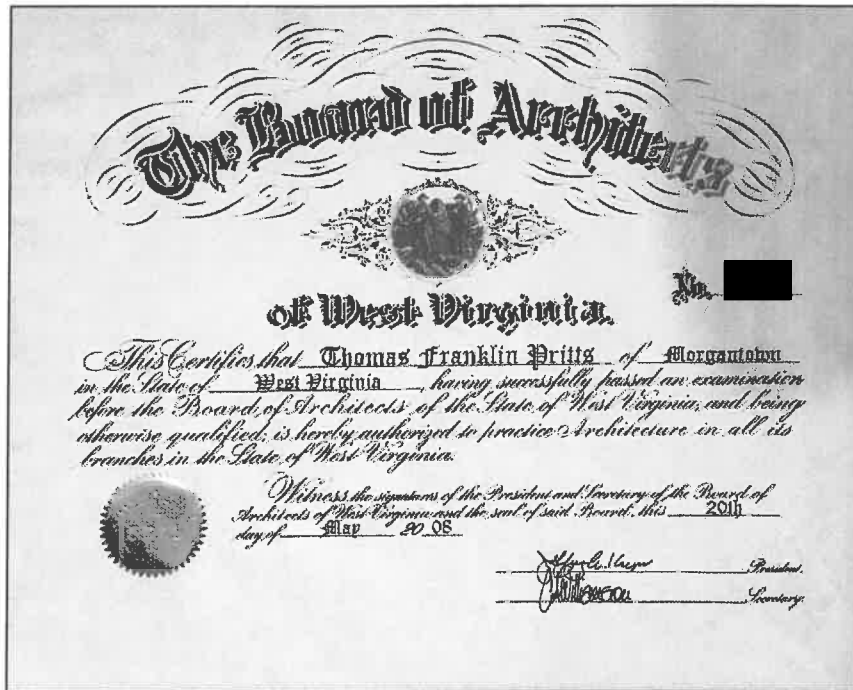 The Board of Architects
No.
of West Virginia.
This Certifies that Thomas Franklin Pritts of Morgantown
in the State of West Virginia, having successfully passed an examination
before the Board of Architects of the State of West Virginia, and being
otherwise qualified, is hereby authorized to practice Architecture in all its
branches in the State of West Virginia.
Witness the signatures of the President and Secretary of the Board of
Architects of West Virginia and the seal of said Board, this 20th
day of May 20 08
President.
Secretary.